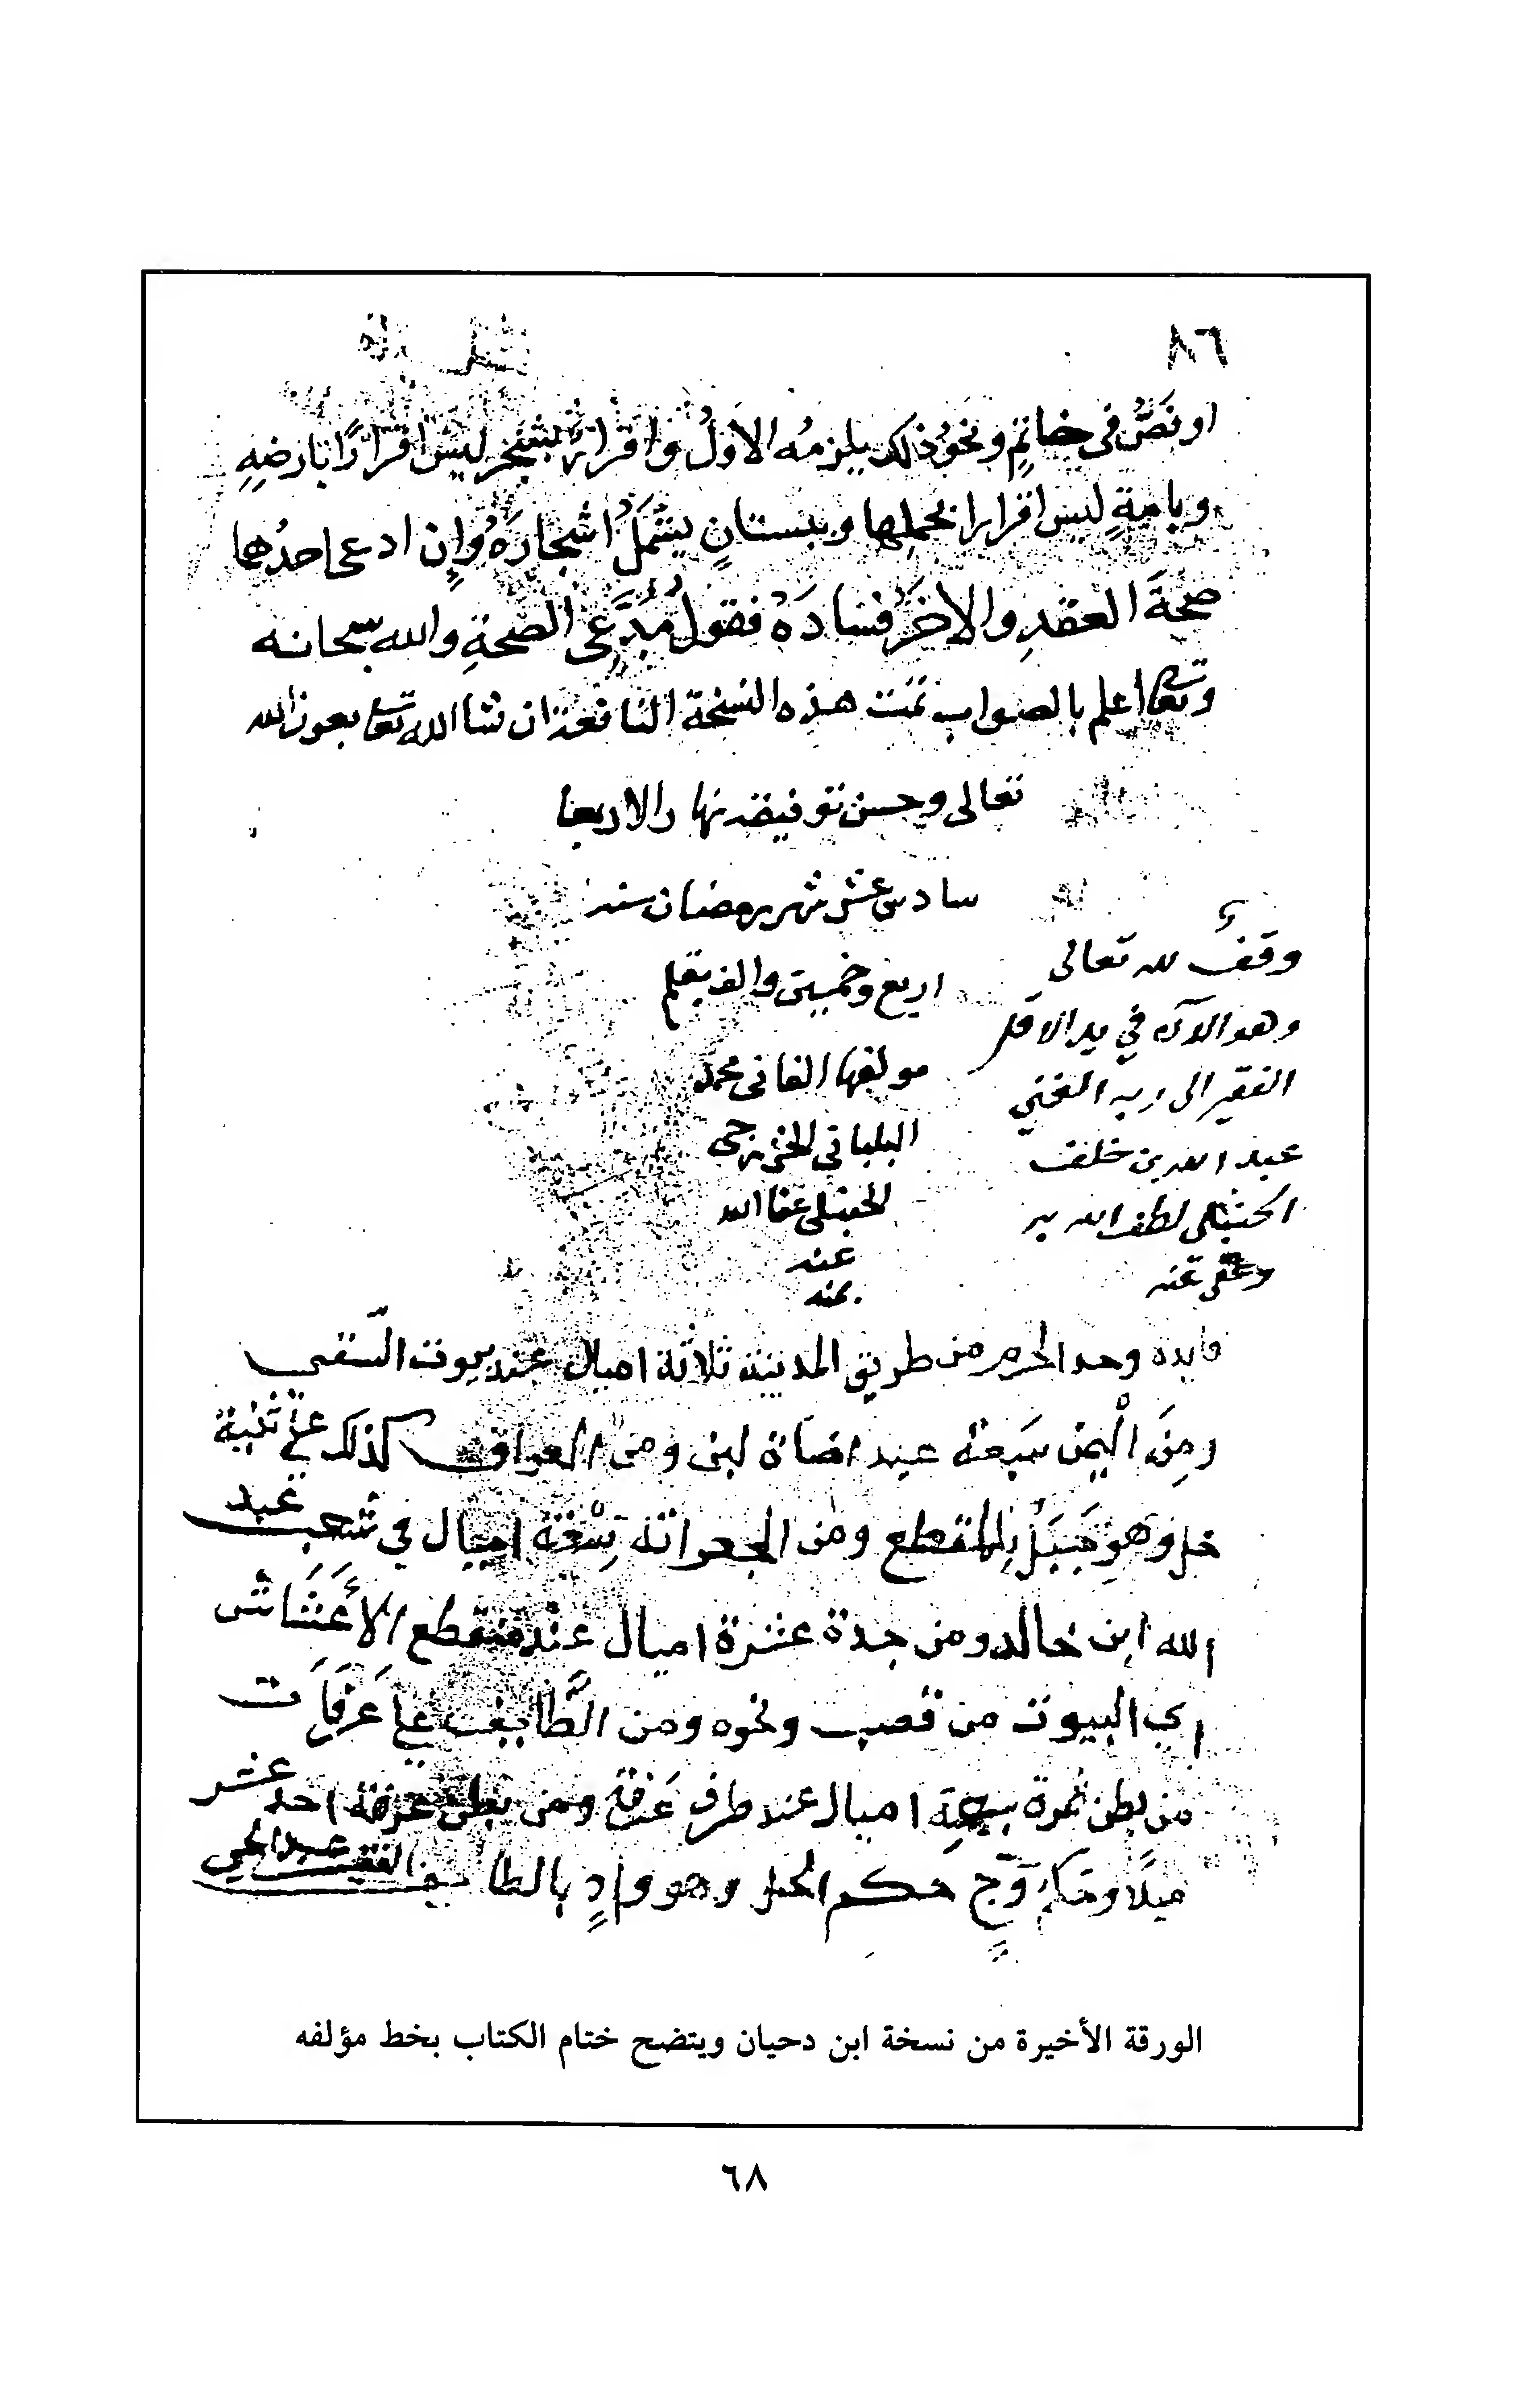 ٨٦
او نَصٌّ فى خاتمٍ ونحوُ ذلك يلزمُه الاولُ واقرارٌ بشجرٍ ليسَ اقرارًا بارضِهِ
وبامةٍ ليس اقرارا بحملِها وببستانٍ يشملُ اشجارَهُ وإن ادعى احدُها
صحةَ العقدِ والاخرُ فسادَهُ فقولُ مُدَّعى الصحةِ والله سبحانه
وتعا اعلم بالصواب تمت هذه النسخة النافعة ان شا الله تعا بعون الله
تعالى وحسن توفيقه نهار الاربعا
سادس عشر شهر رمضان سنه
اربع وخمسين والف بقلم
مولفها الفانى محمد
البلبانى الخزرجى
الحنبلى عفا الله
عنه
بمنه
وقف لله تعالى
وهو الآن في يد الاقل
الفقير الى ربه الغني
عبد الله بن خلف
الحنبلي لطف الله به
وعفى عنه
فايده وحد الحرم من طريق المدينة ثلاثة اميال عند بيوت السّقيى
ومِنَ الْيمن سَبعة عند اضاة لبن ومن العراق كذلك على ثَنِية
خل وهو جَبَلٌ بالمقطع ومن الجعرانة تِسْعَة اميال في شعب عبد
الله ابن خالد ومن جدة عشرة اميال عند منقطع الأعَشَاش
اي البيوت من قصب ونحوه ومن الطَّايف على عَرَفَات
من بطن نمرة سبعة اميال عند طرف عَرَفة ومن بطن عرفة احد عشر
ميلًا وحكم وَجّ حكم الحل وهو وادٍ بالطايف الفقير عبد الحي
الورقة الأخيرة من نسخة ابن دحيان ويتضح ختام الكتاب بخط مؤلفه
٦٨